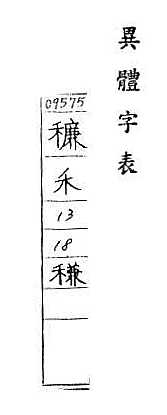 異體字表
09575
穅
禾
13
18
䅩